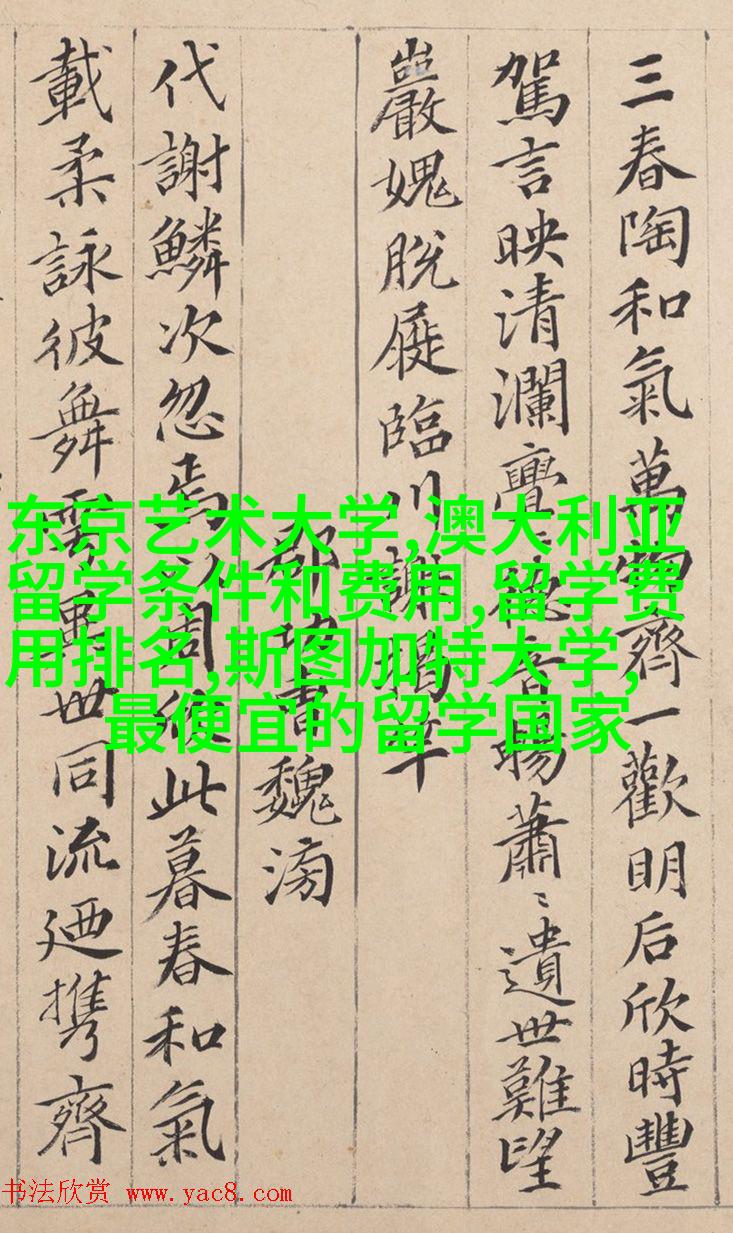 三春陶和氣萬物齊一歡明后欣時豐
駕言映清瀾亹〻德音暢蕭〻遺世難望
巖愧脫屣臨川謝揭竿
郡功曹魏滂
代謝鱗次忽焉以周欣此暮春和氣
載柔詠彼舞雩異世同流廼携齊
东京艺术大学,澳大利亚
留学条件和费用,留学费
用排名,斯图加特大学,
最便宜的留学国家
书法欣赏 www.yac8.com